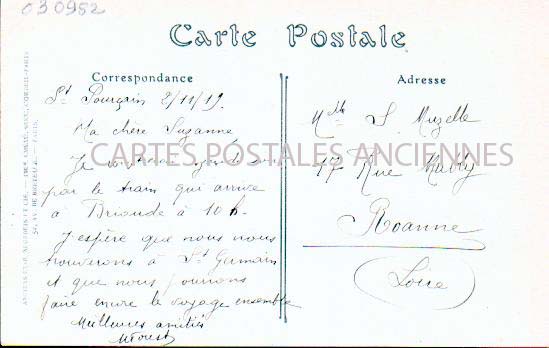 030952
Carte Postale
Correspondance
Adresse
St Pourçain 2/11/19.
Ma chère Suzanne,
Je
par le train qui arrive
à Brioude à 10 h.
J'espère que nous nous
trouverons à St Germain
et que nous pourrons
faire encore le voyage ensemble
Meilleures amitiés
Mlle S. Muzelle
17 Rue Mably
Roanne
(Loire)
CARTES POSTALES ANCIENNES